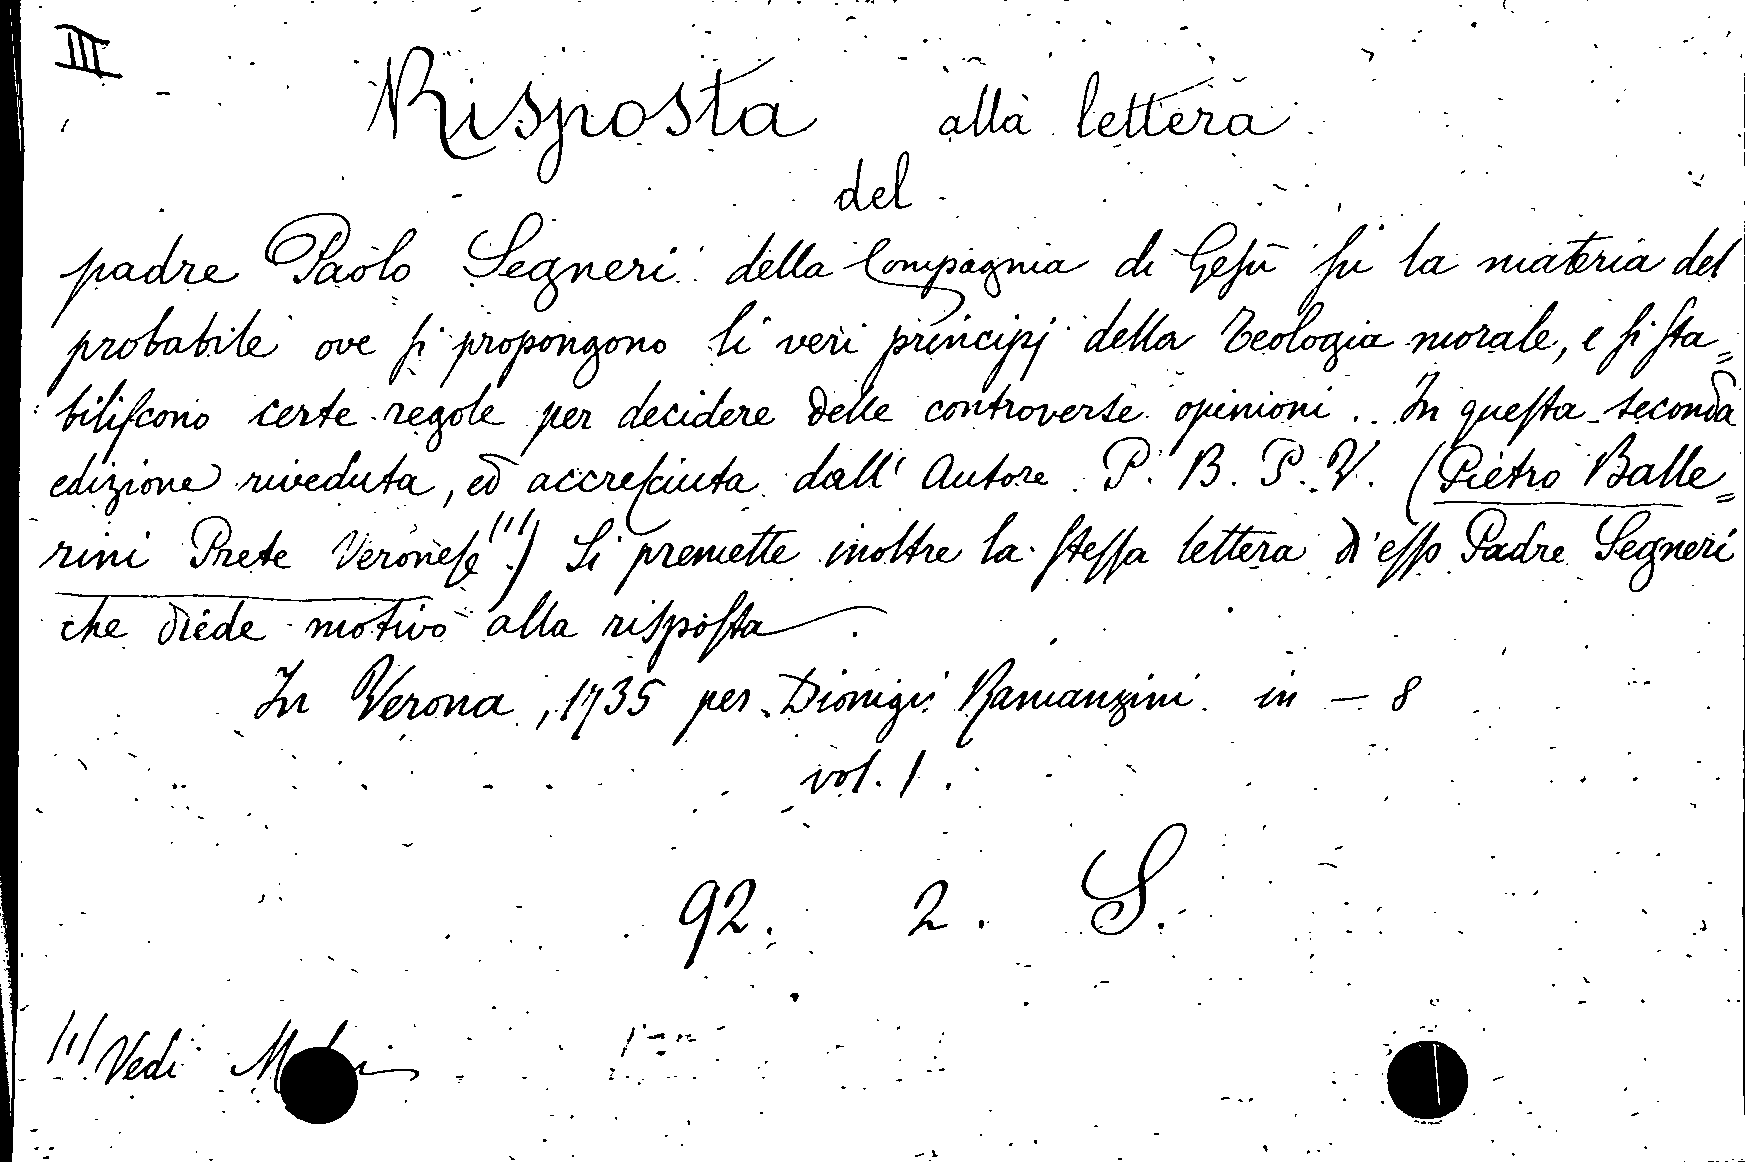 III
Risposta alla lettera
del
padre Paolo Segneri della Compagnia di Gesù su la materia del
probabile ove si propongono li veri principj della Teologia morale, e si sta=
biliscono certe regole per decidere delle controverse opinioni. In questa seconda
edizione riveduta, ed accresciuta dall' Autore P. B. P. V. (Pietro Balle=
rini Prete Veronese (1)) Si premette inoltre la stessa lettera d'esso Padre Segneri
che diede motivo alla risposta.
In Verona, 1735 per Dionigi Ramanzini in - 8
vol. 1.
92. 2. S.
(1) Vedi